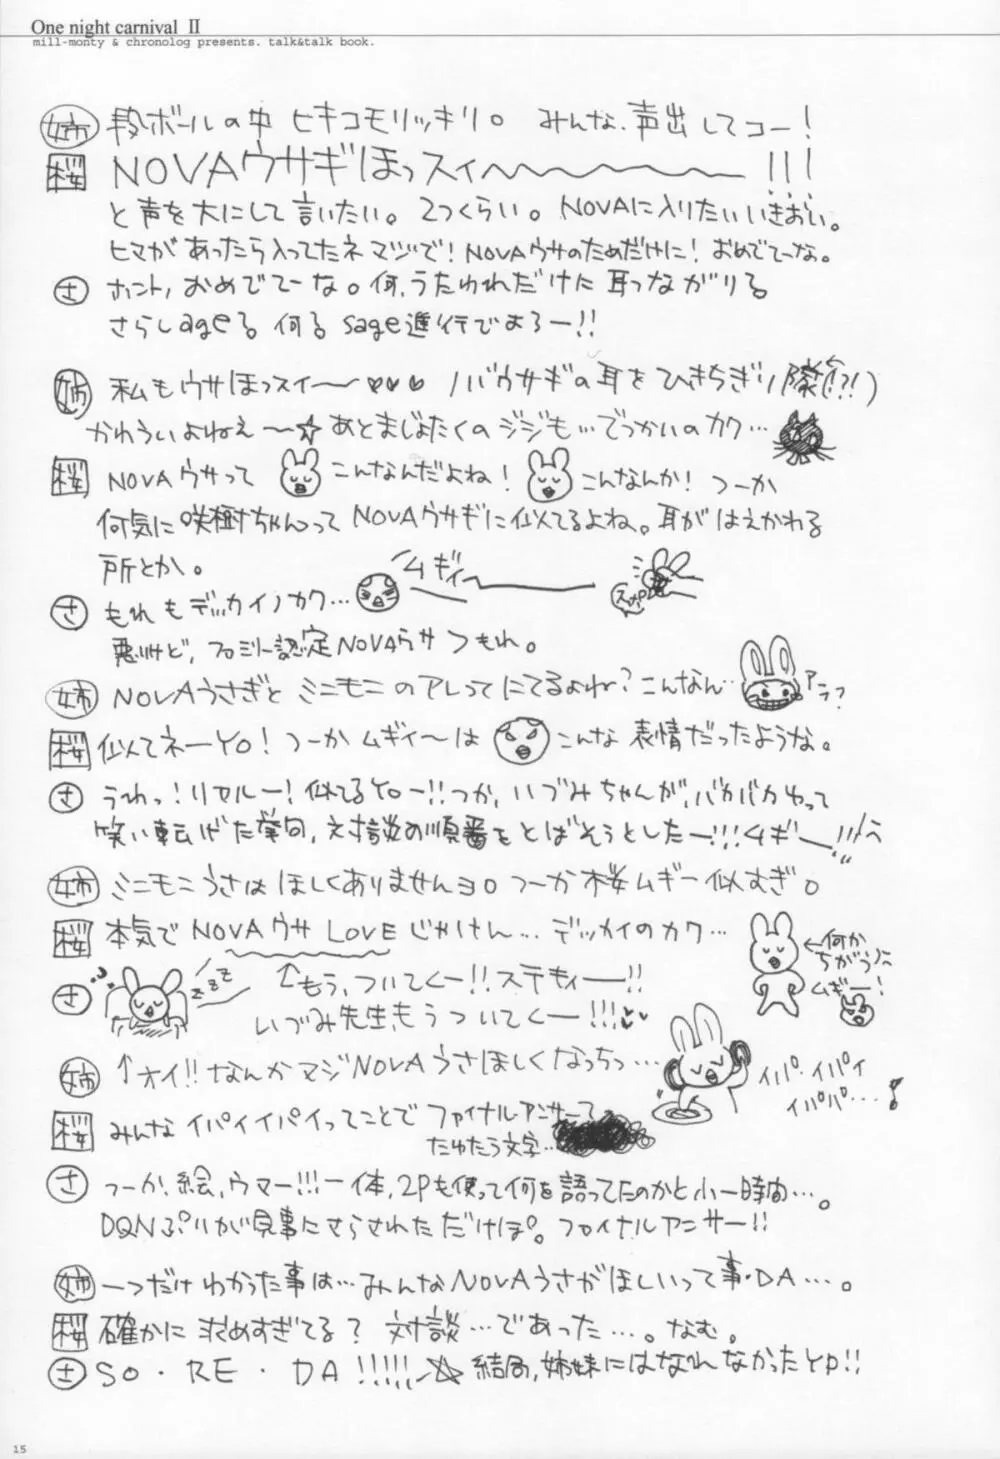 One night carnival Ⅱ
mill-monty & chronolog presents. talk&talk book.
姉 段ボールの中 ヒキコモリッキリ。 みんな、声出してコー!
桜 NOVAウサギほっスィ〜〜〜〜〜〜!!!
と声を大にして言いたい。2つくらい。NOVAに入りたいいきおい。
ヒマがあったら入ってたネ マヅで! NOVAウサのためだけに! おめでてーな。
さ ホント、おめでてーな。何、うたわれだけに耳つながりる
さらしageる 何る sage進行でよろー!!
姉 私もウサほっスイ〜〜♥♥♥ ノバウサギの耳をひきちぎり隊(!?!)
かわういよねえ〜☆ あとまじょたくのジジも…でっかいのカク…
桜 NOVAウサって こんなんだよね! こんなんか! つーか
何気に咲樹ちゃんって NOVAウサギに似てるよね。耳がはえかわる
所とか。
ムギィー
さ もれもデッカイノカク…
悪いけど、 認定NOVAウサ つもれ。
姉 NOVAうさぎと ミニモニのアレってにてるよね?こんなん…
桜 似てネーYO! つーか ムギィ〜は こんな 表情だったような。
さ うわっ!リヤルー! 似てるYOー!!つか、いづみちゃんが、バカバカわって
笑い転げた挙句、対談の順番をとばそうとしたー!!!ムギー!!!
姉 ミニモニうさは ほしくありませんヨ。つーか桜ムギー似すぎ。
桜 本気で NOVAウサ LOVE じゃけん… デッカイのカク…
←何か
ちがう
ムギー!
zzz
さ ↑もう、ついてくー!!ステキィー!!
いづみ先生、もうついてくー!!!♥♥
姉 ↑オイ!! なんかマジNOVAうさほしくなっちっ…
イパ・イパイ
イパパ…!
桜 みんなイパイイパイってことで ファイナルアンサーて、
たゆたう文字…
さ つーか、絵、ウマー!!!一体、2Pも使って何を語ってたのかと小一時間…。
DQNぷりが見事にさらされただけぽ。ファイナルアンサー!!
姉 一つだけわかった事は…みんなNOVAうさがほしいって事・DA…。
桜 確かに 求めすぎてる? 対談…であった…。なむ。
さ SO・RE・DA!!!!!☆ 結局、姉妹にはなれんなかったYP!!
15